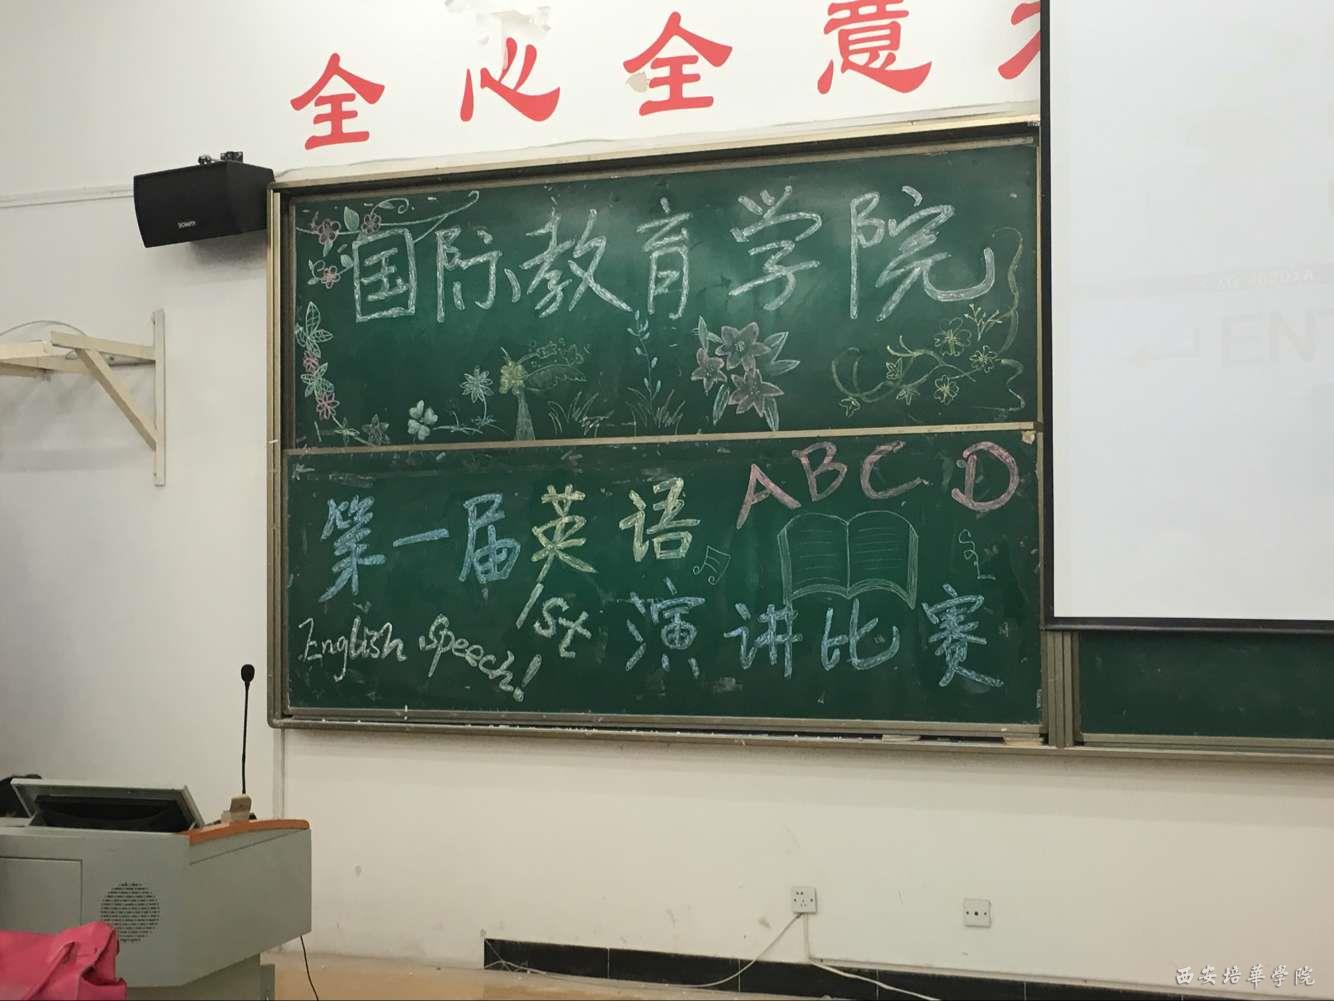 全心全意
国际教育学院
ABCD
第一届英语
1st
演讲比赛
English speech!
西安培華学院